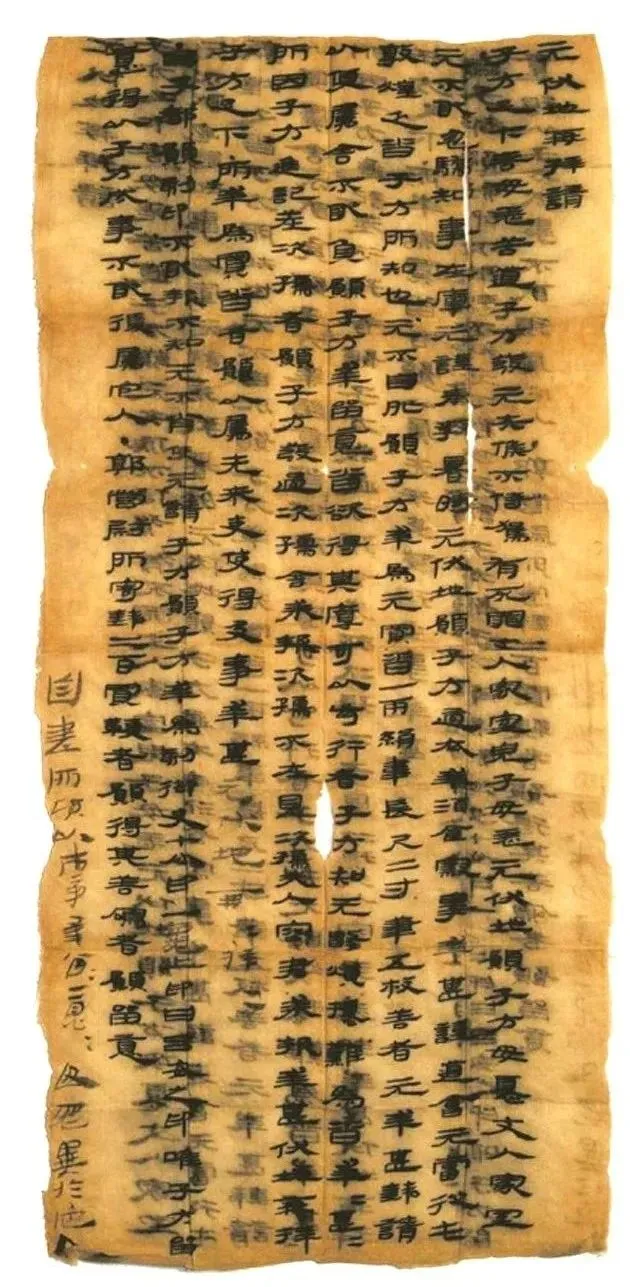 元伏地再拜請
子方足下善毋恙苦道子方發元失候不侍駕有死罪丈人家室兒子毋恙元伏地願子方毋憂丈人家室
元不敢忽驕知事在庫元謹奉教暑時元伏地願子方適衣幸酒食察事幸甚謹道會元當從屯
敦煌乏沓子方所知也元不自外願子方幸為元買沓一兩絹韋長尺二寸筆五枚善者元幸甚錢請
以便屬舍不敢負願子方幸留意沓欲得其厚可以步行者子方知元數煩擾難為沓幸=甚=
所因子方進記差次孺者願子方發過次孺舍求報次孺不在見次孺夫人容君求報幸甚伏地再拜
子方足下所幸為買沓者願以屬先來吏使得及事幸甚元伏地再拜
呂子都願刻印不敢報不知元不肖使元請子方願子方幸為刻御史七分印一龜上印曰呂安之印唯子方留
意得以子方成事不敢復屬它人·郭營尉所寄錢二百買鞭者願得其善鳴者願留意
自書所願以市事幸留=意=毋忽異於它人